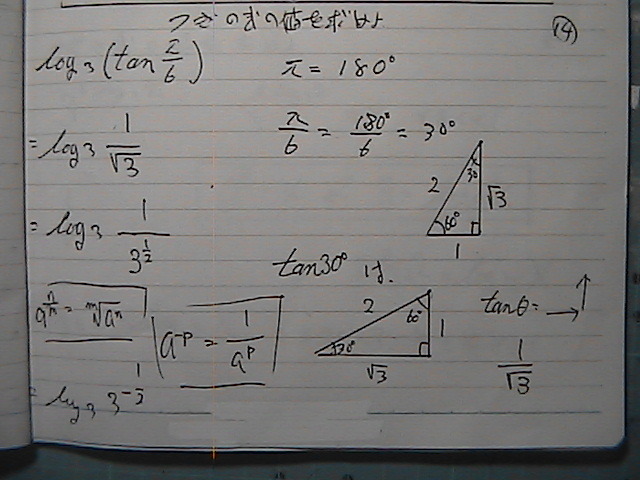 つぎの式の値を求めよ
(14)
log₃(tan π/6)
π = 180°
= log₃ 1/√3
π/6 = 180°/6 = 30°
2 30 √3 60° 1
= log₃ 1/3^(1/2)
tan30° は.
a^(n/m) = ᵐ√aⁿ
a^(-p) = 1/a^p
2 60° 1 30° √3
tanθ = → ↑
1/√3
= log₃ 3^(-1/2)